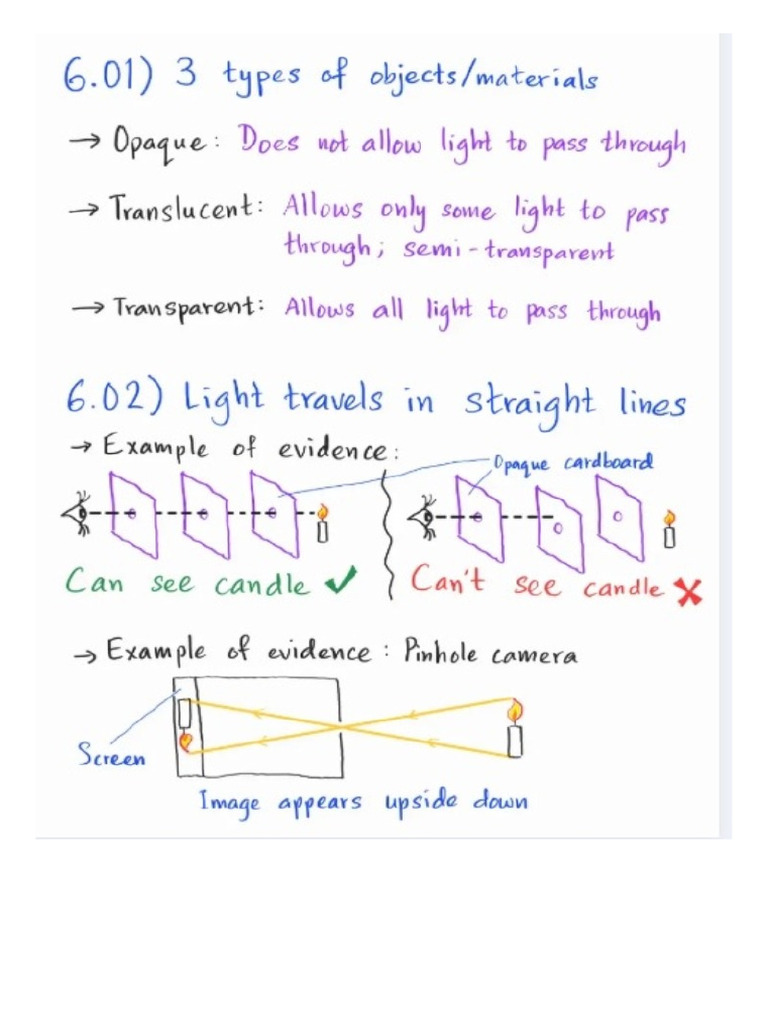 6.01) 3 types of objects/materials
→ Opaque: Does not allow light to pass through
→ Translucent: Allows only some light to pass
through; semi-transparent
→ Transparent: Allows all light to pass through
6.02) Light travels in straight lines
→ Example of evidence:
Opaque cardboard
Can see candle ✓
Can't see candle ✗
→ Example of evidence: Pinhole camera
Screen
Image appears upside down